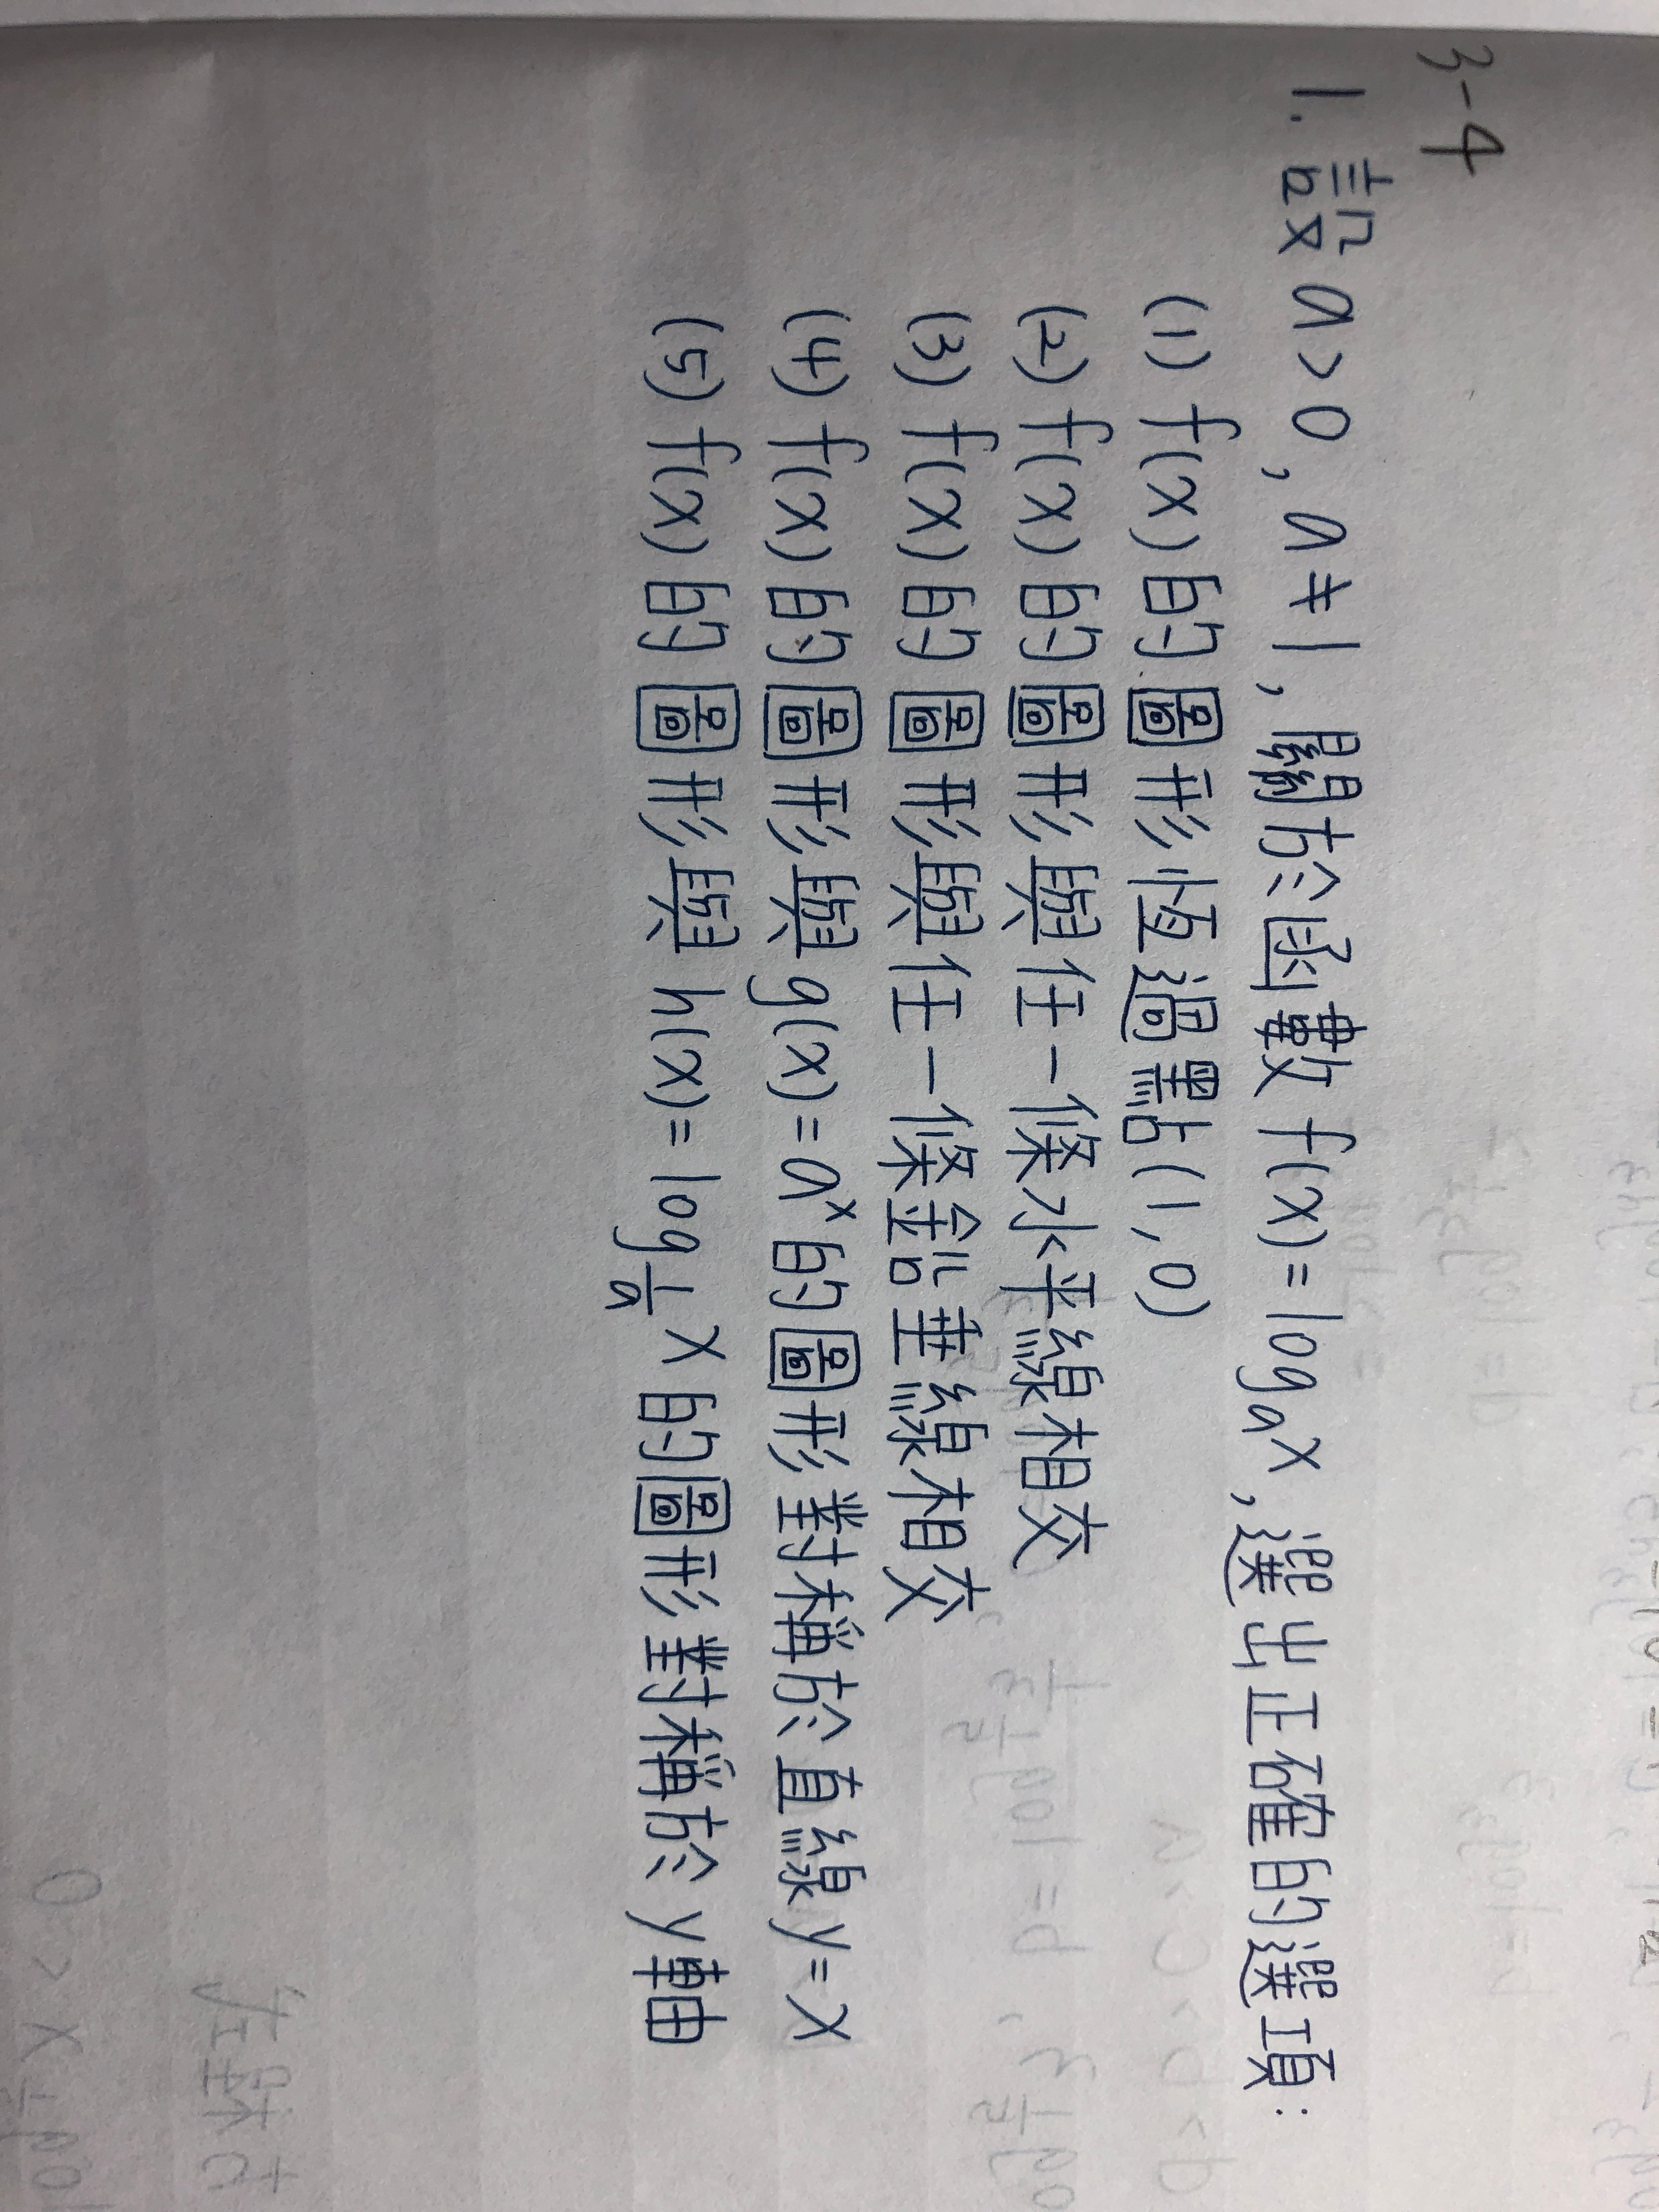 3-4
1. 設 a > 0 , a ≠ 1 , 關於函數 f(x) = log a x , 選出正確的選項 :
(1) f(x) 的圖形恆過點 (1, 0)
(2) f(x) 的圖形與任一條水平線相交
(3) f(x) 的圖形與任一條鉛垂線相交
(4) f(x) 的圖形與 g(x) = aˣ 的圖形對稱於直線 y = x
(5) f(x) 的圖形與 h(x) = log 1/a x 的圖形對稱於 y 軸